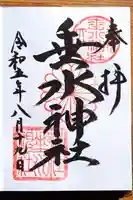 奉拝
垂水神社
令和五年八月九日